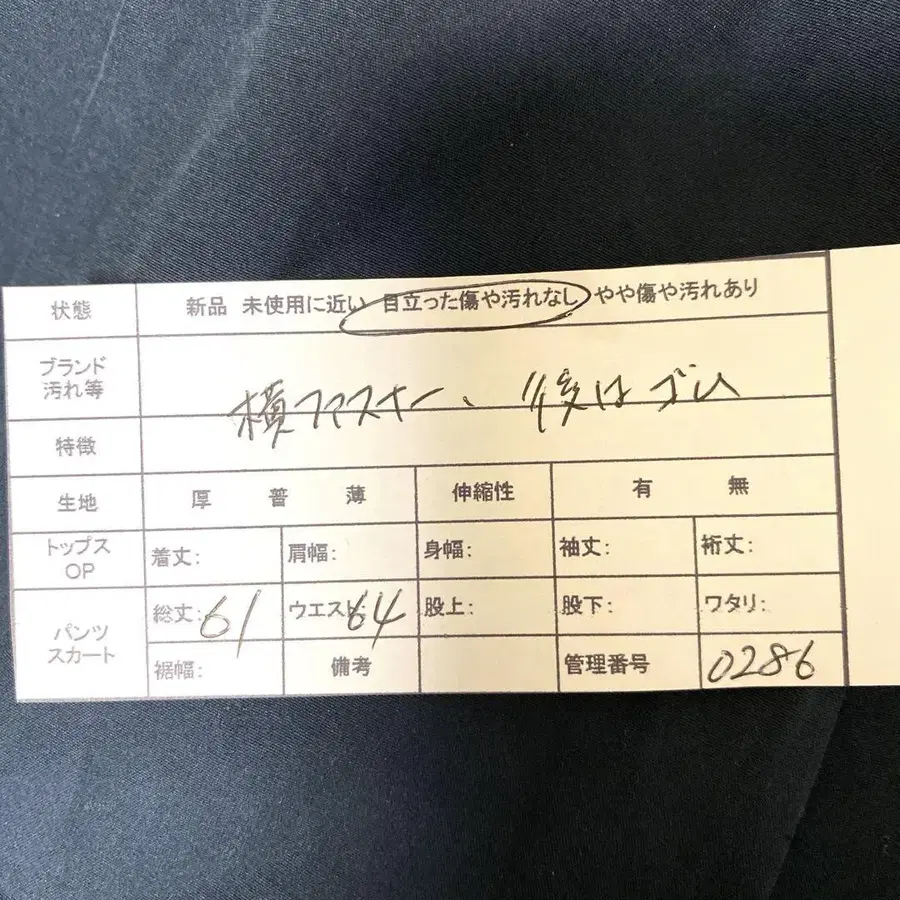 状態 新品 未使用に近い 目立った傷や汚れなし やや傷や汚れあり
ブランド
汚れ等
横ファスナー、後はゴム
特徴
生地 厚 普 薄 伸縮性 有 無
トップス
OP
着丈: 肩幅: 身幅: 袖丈: 裄丈:
パンツ
スカート
総丈:61 ウエスト:64 股上: 股下: ワタリ:
裾幅: 備考 管理番号 0286